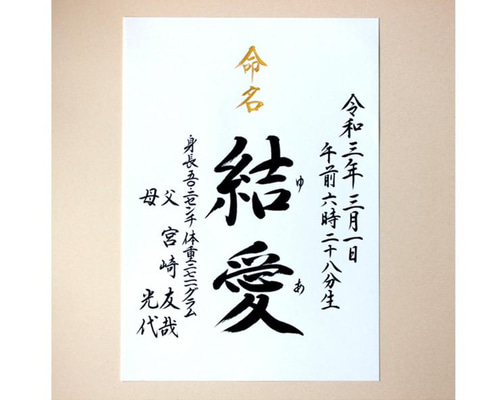 令和三年 三月一日
午前六時二十八分生
命名
結愛
ゆあ
身長 センチ 体重 グラム
父 宮崎 友哉
母 光代